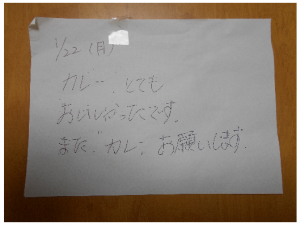 1/22(月)
カレー、とても
おいしかったです。
また、カレー、お願いします。